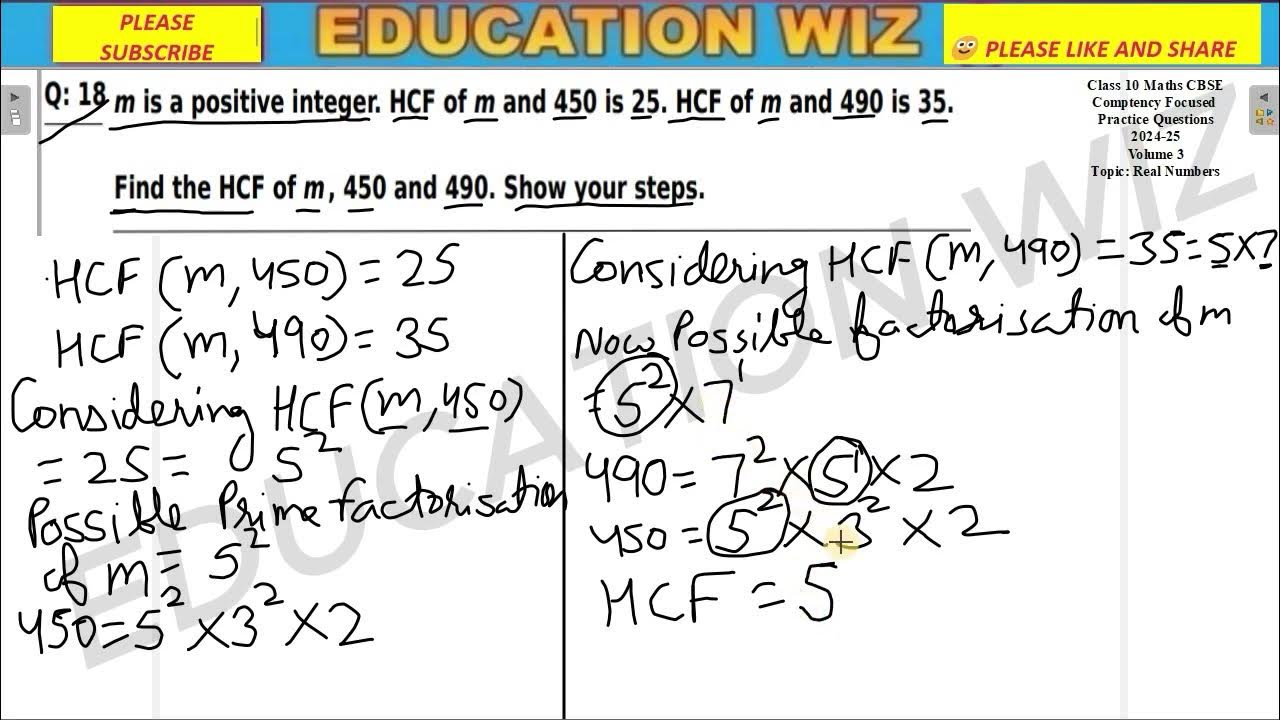 PLEASE
SUBSCRIBE
EDUCATION WIZ
PLEASE LIKE AND SHARE
Q: 18 m is a positive integer. HCF of m and 450 is 25. HCF of m and 490 is 35.
Find the HCF of m, 450 and 490. Show your steps.
Class 10 Maths CBSE
Comptency Focused
Practice Questions
2024-25
Volume 3
Topic: Real Numbers
HCF (m, 450) = 25
HCF (m, 490) = 35
Considering HCF(m, 450)
= 25 = 5²
Possible Prime factorisation
of m = 5²
450 = 5² × 3² × 2
Considering HCF (m, 490) = 35 = 5×7
Now Possible factorisation of m
= 5² × 7¹
490 = 7² × 5¹ × 2
450 = 5² × 3² × 2
HCF = 5
EDUCATION WIZ